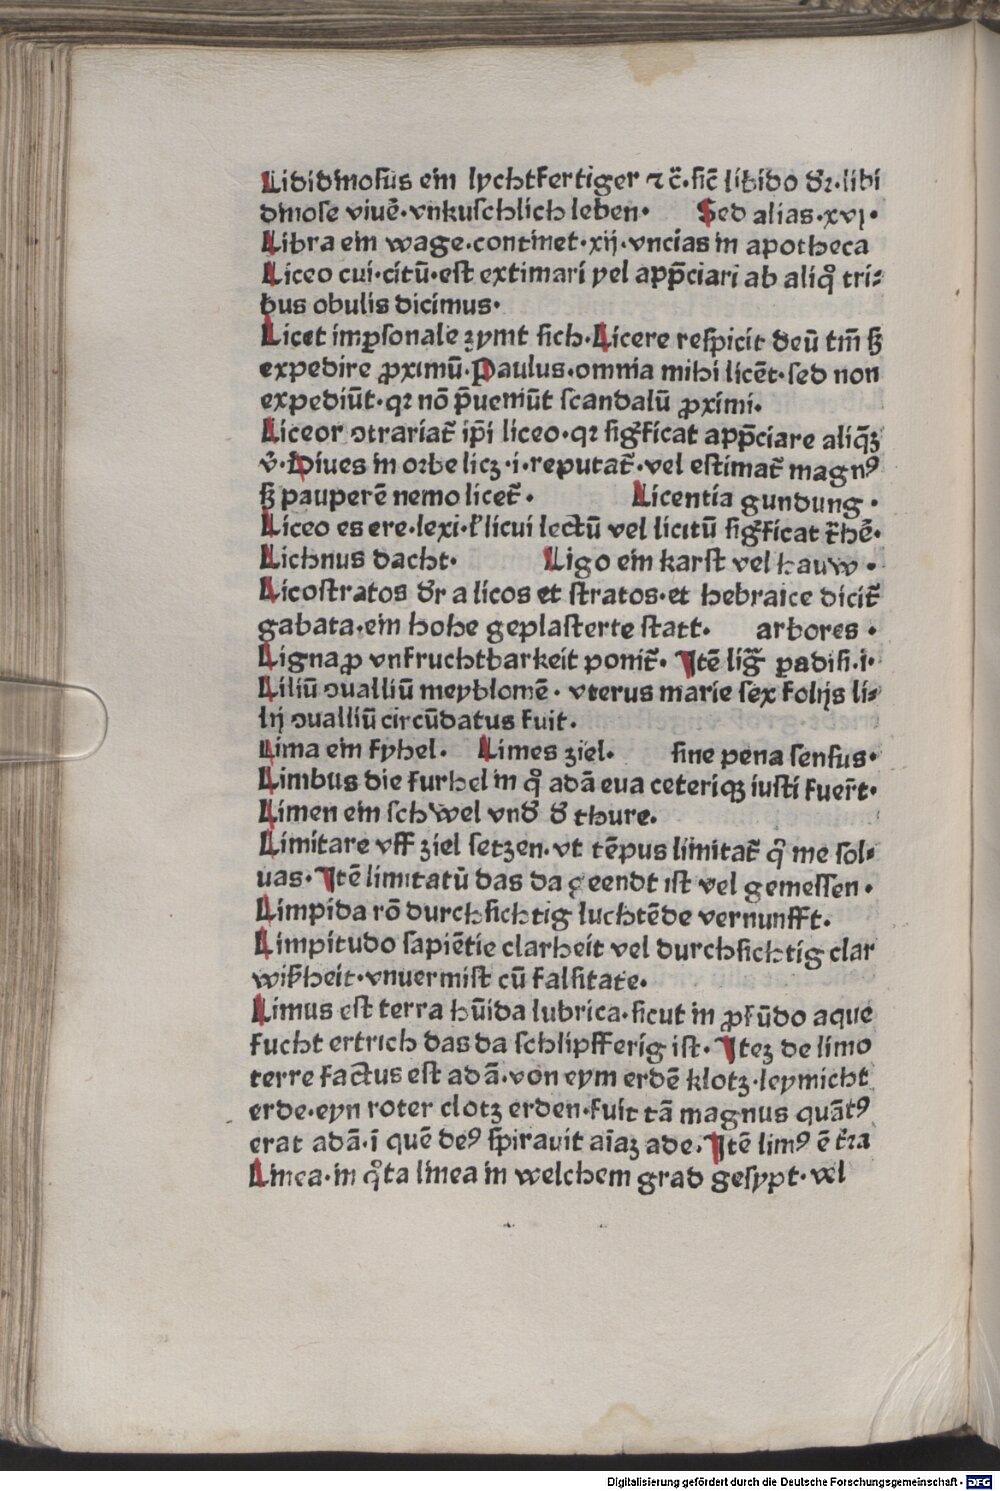 Lididinosus ein lychtfertiger ⁊ c̄·sic̄ libido dꝛ·libi
dinose viuē·vnkuschlich leben· Sed alias·xvj·
Libra ein wage·continet·xij·vncias in apotheca
Liceo cui·citū·est extimari vel app̄ciari ab aliqͦ tri⸗
bus obulis dicimus·
Licet imꝑsonale zymt sich·Licere respicit deū tm̄ sꝫ
expedire ꝓximū·Paulus·omnia mihi licēt·sed non
expediūt·qꝛ nō p̄ueniūt scandalū ꝓximi·
Liceor ↄtrariat̄ ip̄i liceo·qꝛ sigͥficat app̄ciare aliq̄ꝫ
v̄·Diues in orbe licꝫ·i·reputat̄·vel estimat̄ magnꝰ
sꝫ pauperē nemo licet̄· Licentia gundung·
Liceo es ere·lexi·ł licui lectū vel licitū sigͥficat t̄hē·
Lichnus dacht· Ligo ein karst vel hauw·
Licostratos dꝛ a licos et stratos·et hebraice dicit̄
gabata·ein hohe geplasterte statt· arbores·
Ligna ꝓ vnfruchtbarkeit ponit̄· Itē liḡ ꝑadisi·i·
Liliū ↄualliū meyblomē·vterus marie sex folijs li⸗
lij ↄualliū circūdatus fuit·
Lima ein fyhel· Limes ziel· sine pena sensus·
Limbus die furhel in qͦ adā eua ceteriqꝫ iusti fuer̄t·
Limen ein schwel vnd̄ d̄ thure·
Limitare vff ziel setzen·vt tēpus limitat̄ qͦ me sol⸗
uas·Itē limitatū das da geendt ist vel gemessen·
Limpida rō durchsichtig luchtēde vernunfft·
Limpitudo sapiētie clarheit vel durchsichtig clar
wißheit·vnuermist cū falsitate·
Limus est terra hūida lubrica·sicut in ꝓfūdo aque
fucht ertrich das da schlipfferig ist·Iteꝫ de limo
terre factus est adā·von eym erdē klotz·leymicht
erde·eyn roter clotz erden·fuit tā magnus quātꝰ
erat adā·ī quē deꝰ spirauit aīaꝫ ade·Itē limꝰ ē t̄ra
Linea·in qͣta linea in welchem grad gesypt·vel
Digitalisierung gefördert durch die Deutsche Forschungsgemeinschaft · DFG